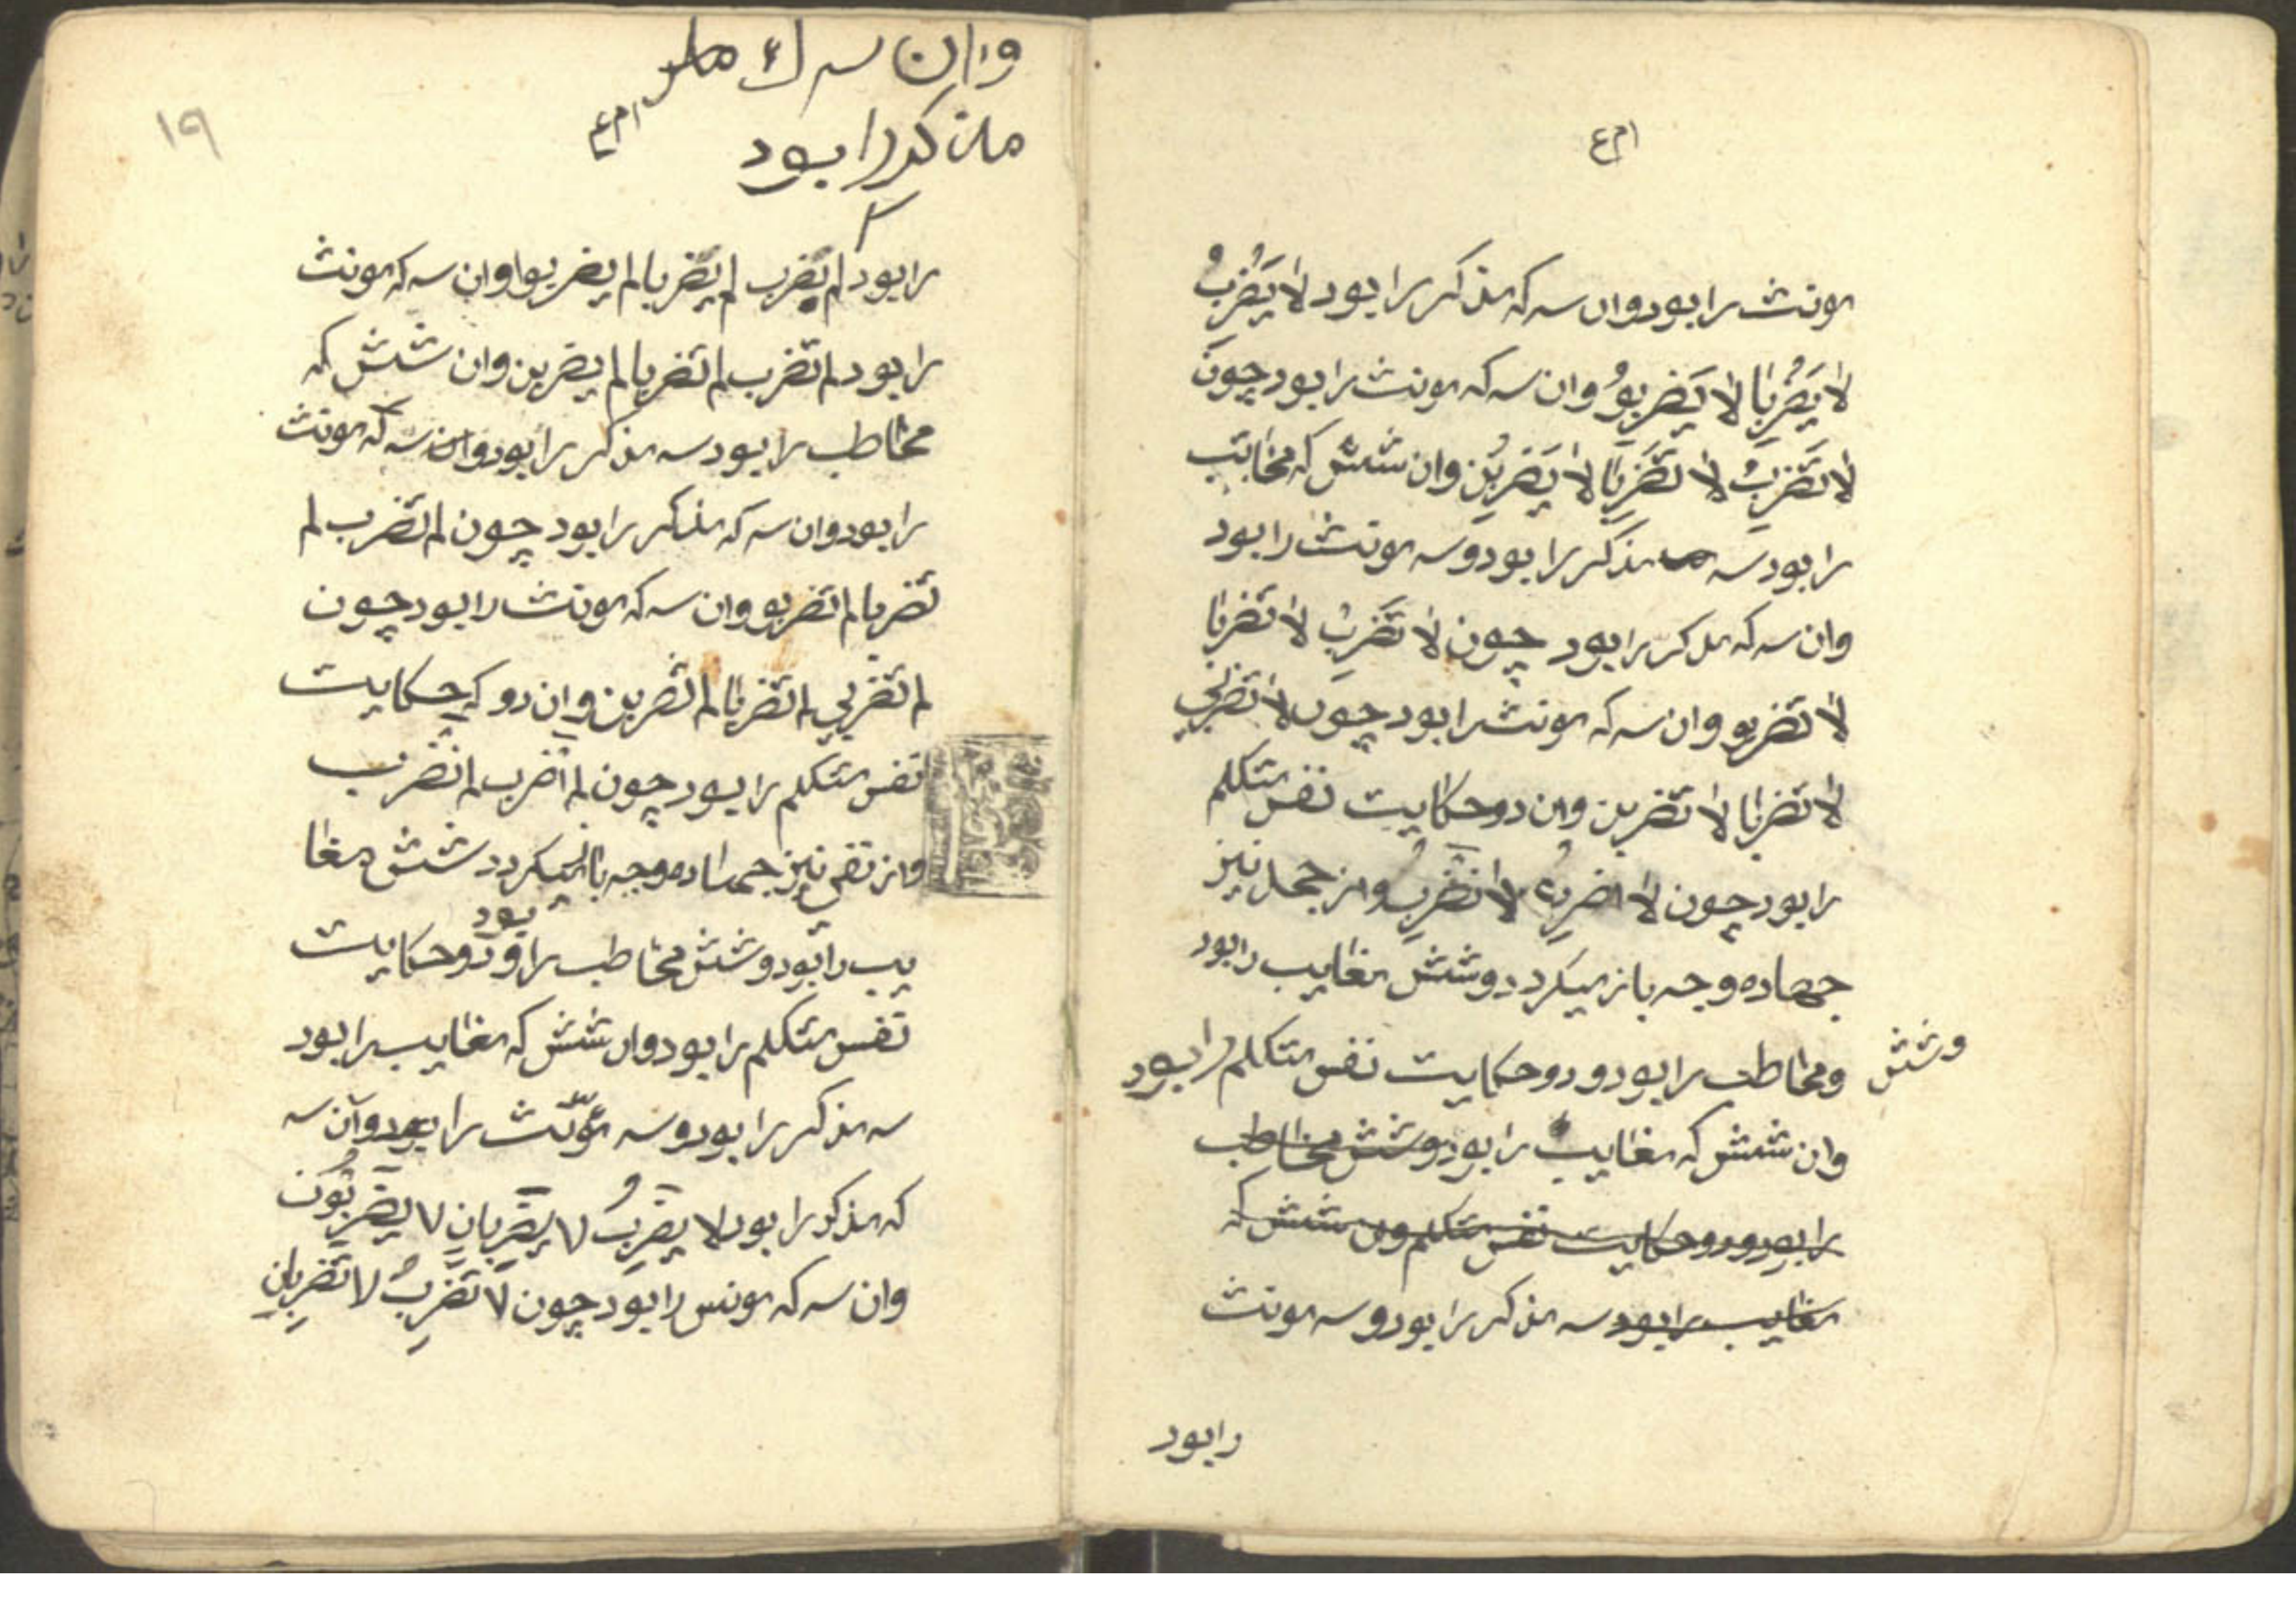 مونث را بود وان سه که مذکر را بود لا یَضْرِبُ
لا یَضْرِبَا لا یَضْرِبوُ وان سه که مونث را بود چون
لا تَضْرِبُ لا تَضْرِبَا لا یَضْرِبْن وان شش که مخاتب
را بود سه مذکر را بود وسه مونث را بود
وان سه که مذکر را بود چون لا تَضْرِبْ لا تضربا
لا تضربو وان سه که مونث را بود چون لا تضربی
لا تضربا لا تضربن وان دو حکایت نفس متکلم
را بود چون لا اضربُ لا نَضْرِبُ واز جحد نیز
چهاده وجه باز میکردد وشش مغایب را بود
وشش
ومخاطب را بود ودو حکایت نفس متکلم را بود
وان شش که مغایب را بود وشش مخاطب
را بود ودو حکایت نفس متکلم وان شش که
مغایب را بود سه مذکر را بود وسه مونث
را بود
۱۹
وان سه که
مذکر را بود
را بود لم یضرب لم یضربا لم یضربوا وان سه که مونث
را بود لم تضرب لم تضربا لم یضربن وان شش که
مخاطب را بود سه مذکر را بود وان سه که مونث
را بود وان سه که مذکر را بود چون لم تضرب لم
تضربا لم تضربو وان سه که مونث را بود چون
لم تضربی لم تضربا لم تضربن وان دو که حکایت
نفس متکلم را بود چون لم اضرب لم نضرب
واز نفی نیز چهاده وجه باز میکردد شش مغا
یب را بود وشش مخاطب را بود ودو حکایت
نفس متکلم را بود وان شش که مغایب را بود
سه مذکر را بود وسه مؤنّث را بود وآن سه
که مذکر را بود لا یضرِبُ لا یضرِبانِ لا یضرِبُونَ
وان سه که مونس را بود چون لا تضرِبُ لا تضرِبانِ